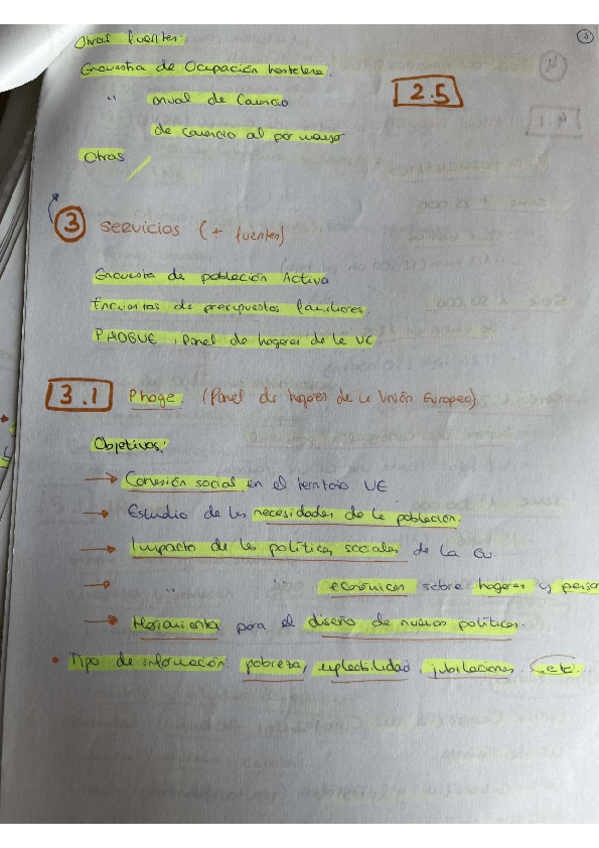 Otras fuentes:
Encuesta de Ocupación hostelera.
" anual de Comercio
2.5
de comercio al por mayor
Otras
3 Servicios (+ fuentes)
Encuesta de población Activa
Encuestas de presupuestos familiares
PHOGUE, Panel de hogares de la UE.
3.1 Phoge (Panel de hogares de la Unión Europea)
Objetivos:
→ Cohesión social en el territorio UE
→ Estudio de las necesidades de la población.
→ Impacto de las políticas sociales de la
→ " " económicas sobre hogares y perso
→ Herramienta para el diseño de nuevas políticas.
• Tipo de información: pobreza, empleabilidad, jubilaciones, etc